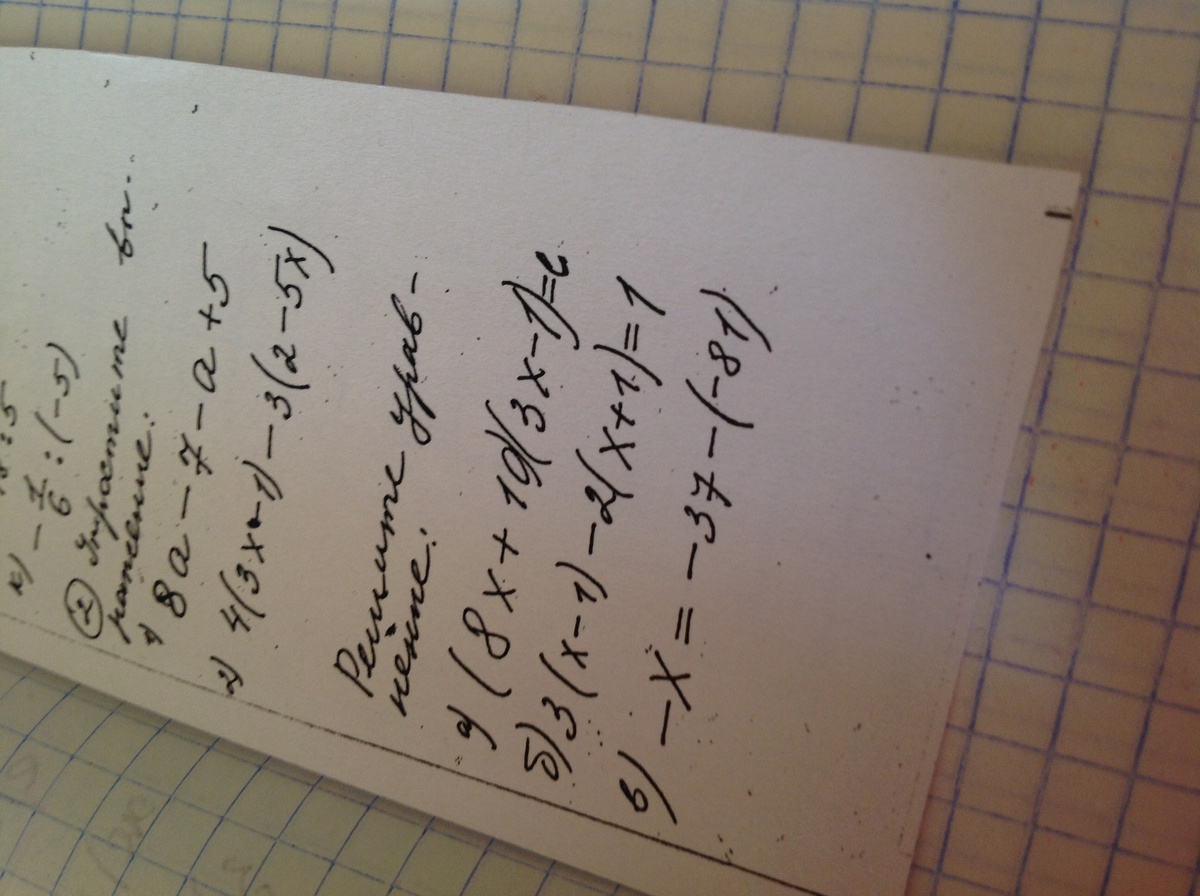 : 5
к) - 7/6 : (-5)
② Упростите вы-
ражение:
1) 8a - 7 - a + 5
2) 4(3x - 1) - 3(2 - 5x)
Решите урав-
нение:
а) (8x + 10)(3x - 1) =
б) 3(x - 1) - 2(x + 1) = 1
в) -x = -37 - (-81)